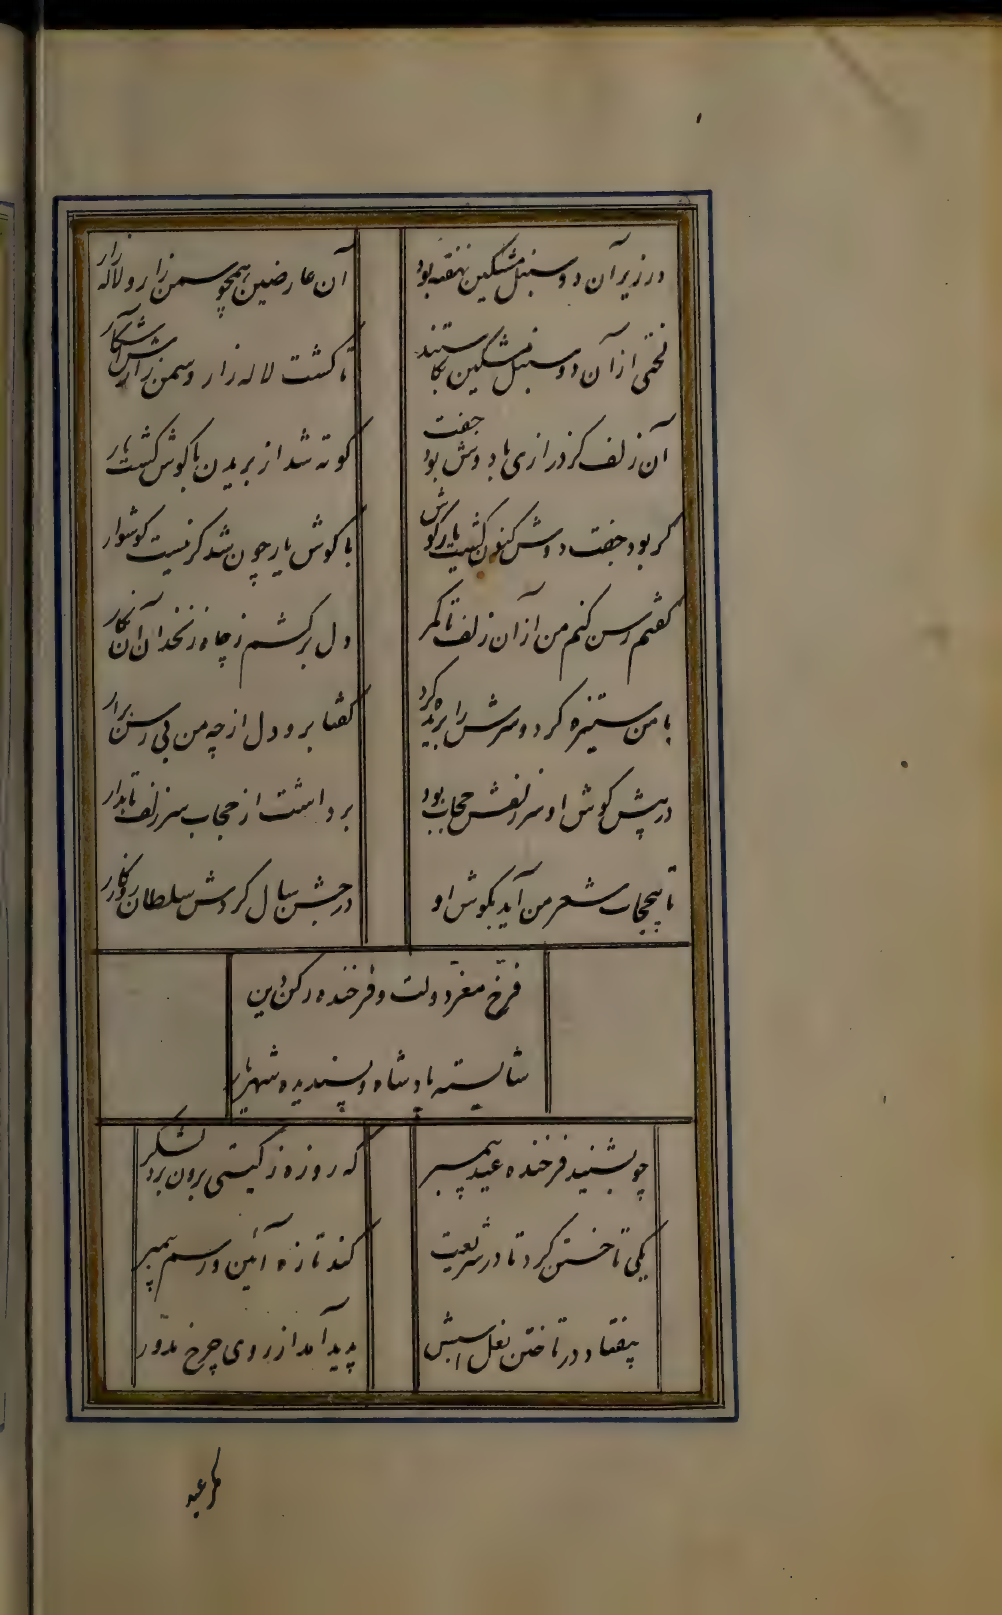 در زیر آن دو سنبل مشکین نهفته بود
آن عارضین همچو سمن زار و لاله زار
لختی از آن دو سنبل مشکین بکاستند
تا کشت لاله زار و سمن زارش آشکار
آن زلف کز درازی با دوش بود جفت
کوته شد از بریدن با کوش کشت یار
کر بود جفت دوش کنون کشت یار کوش
با کوش یار چون شد کر نیست کوشوار
کفتم رسن کنم من از آن زلف تا مکر
دل برکشم ز چاه زنخدان آن نکار
با من ستیزه کرد و سرش را بریده کرد
کفتا برو دل از چه من بی رسن برار
در پیش کوش او سر زلفش حجاب بود
برداشت از حجاب سر زلف تابدار
تا بیحجاب شعر من آید بکوش او
در جشن سال کردش سلطان روزکار
فرخ معز دولت و فرخنده رکن دین
شایسته پادشاه و پسندیده شهریار
چو بشنید فرخنده عید پیمبر
که روزه ز کیتی برون برد لشکر
یکی تاختن کرد تا در شریعت
کند تازه آئین و رسم پیمبر
بیفتاد در تاختن نعل اسبش
پدید آمد از روی چرخ مدور